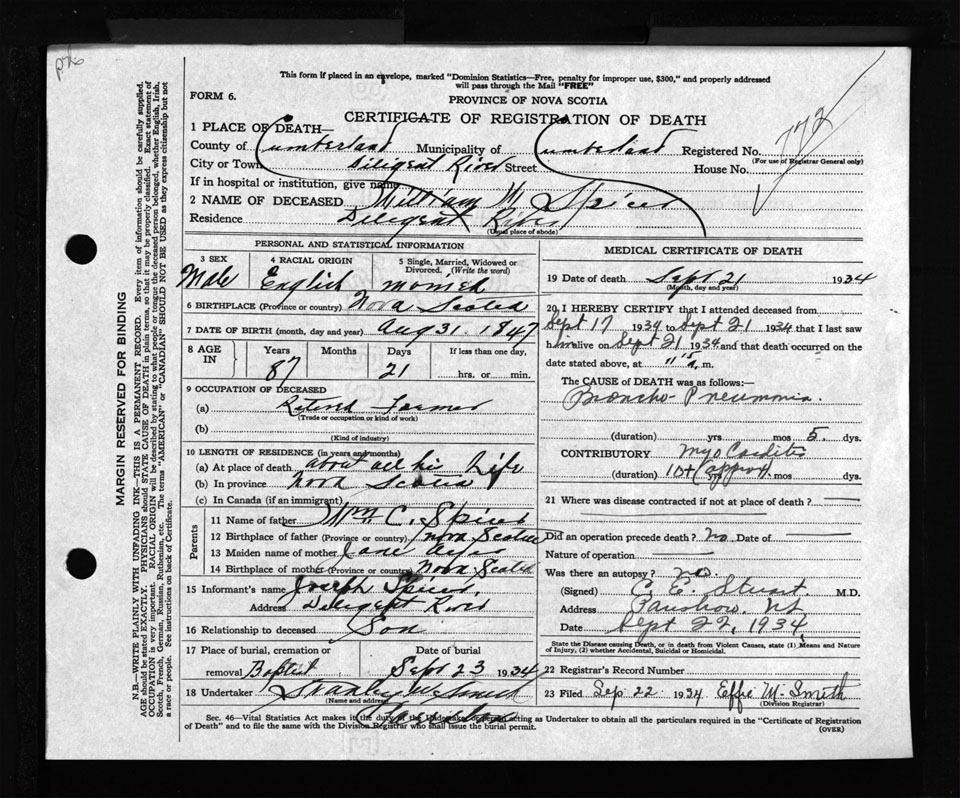 This form if placed in an envelope, marked "Dominion Statistics—Free, penalty for improper use, $300," and properly addressed
will pass through the Mail "FREE"
FORM 6.
PROVINCE OF NOVA SCOTIA
CERTIFICATE OF REGISTRATION OF DEATH
772
1 PLACE OF DEATH—
County of Cumberland Municipality of Cumberland Registered No.
(For use of Registrar General only)
City or Town Diligent River Street House No.
If in hospital or institution, give name
2 NAME OF DECEASED William M. Spicer
Residence Diligent River
(Usual place of abode)
PERSONAL AND STATISTICAL INFORMATION
3 SEX 4 RACIAL ORIGIN 5 Single, Married, Widowed or Divorced. (Write the word)
Male English
6 BIRTHPLACE (Province or country) Nova Scotia
7 DATE OF BIRTH (month, day and year) Aug 31. 1847
8 AGE IN Years Months Days If less than one day,
87 21 hrs. or min.
9 OCCUPATION OF DECEASED
(a) Retired Farmer
(Trade or occupation or kind of work)
(b)
(Kind of industry)
10 LENGTH OF RESIDENCE (in years and months)
(a) At place of death about all his Life
(b) In province Nova Scotia
(c) In Canada (if an immigrant)
Parents
11 Name of father Wm C. Spicer
12 Birthplace of father (Province or country) Nova Scotia
13 Maiden name of mother Jane
14 Birthplace of mother (Province or country) Nova Scotia
15 Informant's name Joseph Spicer
Address Diligent River
16 Relationship to deceased Son
17 Place of burial, cremation or removal Baptist Date of burial Sept 23 1934
18 Undertaker Stanley
(Name and address)
MEDICAL CERTIFICATE OF DEATH
19 Date of death Sept 21 1934
(Month, day and year)
20 I HEREBY CERTIFY that I attended deceased from
Sept 17 1934 to Sept 21 1934 that I last saw
him alive on Sept 21 1934 and that death occurred on the
date stated above, at 11 15 a. m.
The CAUSE OF DEATH was as follows:—
Broncho-Pneumonia.
(duration) yrs mos 5. dys.
CONTRIBUTORY Myocarditis
(duration) 10+ (approx) mos. dys.
21 Where was disease contracted if not at place of death?
Did an operation precede death? No Date of
Nature of operation
Was there an autopsy? no.
(Signed) C. E. Stuart. M.D.
Address Parrsboro. NS
Date Sept 22, 1934.
State the Disease causing Death, or in death from Violent Causes, state (1) Means and Nature of Injury, (2) whether Accidental, Suicidal or Homicidal.
22 Registrar's Record Number
23 Filed Sep. 22 1934 Effie M. Smith
(Division Registrar)
Sec. 46—Vital Statistics Act makes it the duty of the Undertaker or person acting as Undertaker to obtain all the particulars required in the "Certificate of Registration
of Death" and to file the same with the Division Registrar who shall issue the burial permit. (OVER)
MARGIN RESERVED FOR BINDING
N.B.—WRITE PLAINLY WITH UNFADING INK—THIS IS A PERMANENT RECORD. Every item of information should be carefully supplied.
AGE should be stated EXACTLY. PHYSICIANS should STATE CAUSE OF DEATH in plain terms, so that it may be properly classified. Exact statement of
OCCUPATION is very important. RACIAL ORIGIN will be described by stating to what people or tongue the deceased person belonged, whether English, Irish,
Scotch, French, German, Russian, Ruthenian, etc. The terms "AMERICAN" or "CANADIAN" SHOULD NOT BE USED as they express citizenship but not
a race or people. See instructions on back of Certificate.